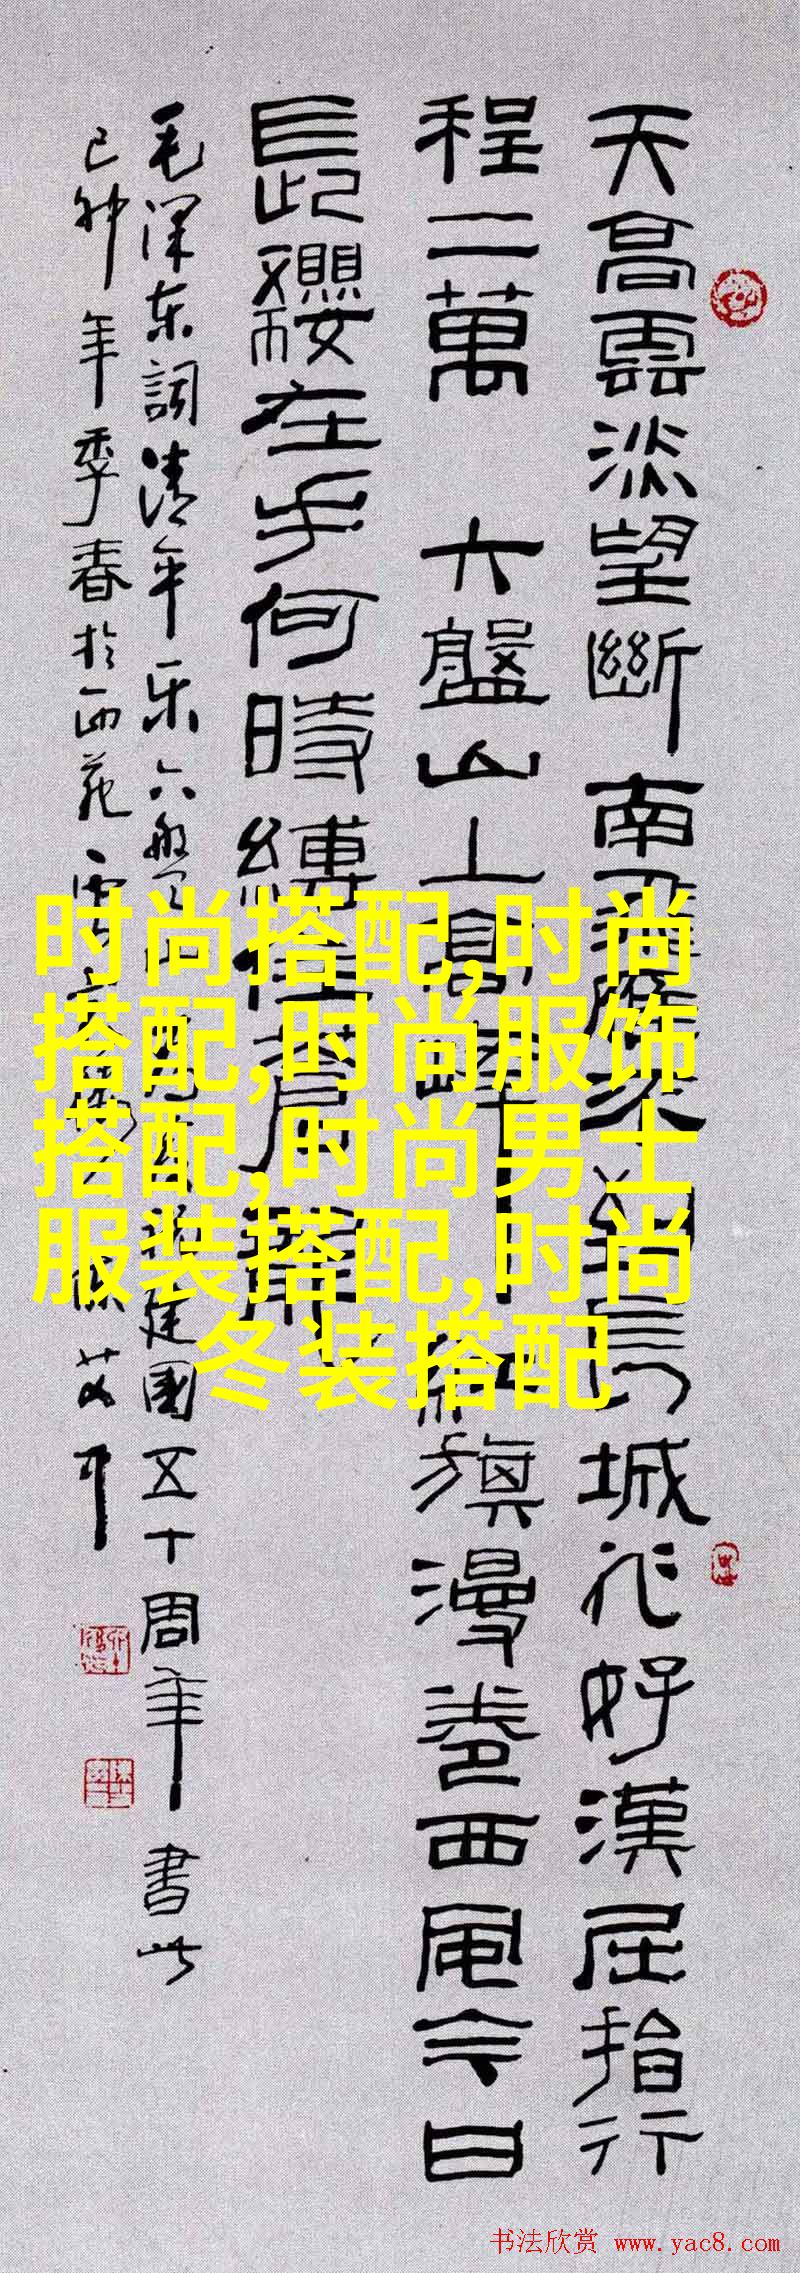 天高雲淡望斷南飛雁不到長城非好漢屈指行
程二萬 六盤山上高峰 紅旗漫卷西風今日
長纓在手何時縛住蒼龍
毛澤东詞清平乐六盤山 建國五十周年書此
己卯年季春於西苑
时尚搭配,时尚
搭配,时尚服饰
搭配,时尚男士
服装搭配,时尚
冬装搭配
书法欣赏 www.yac8.com